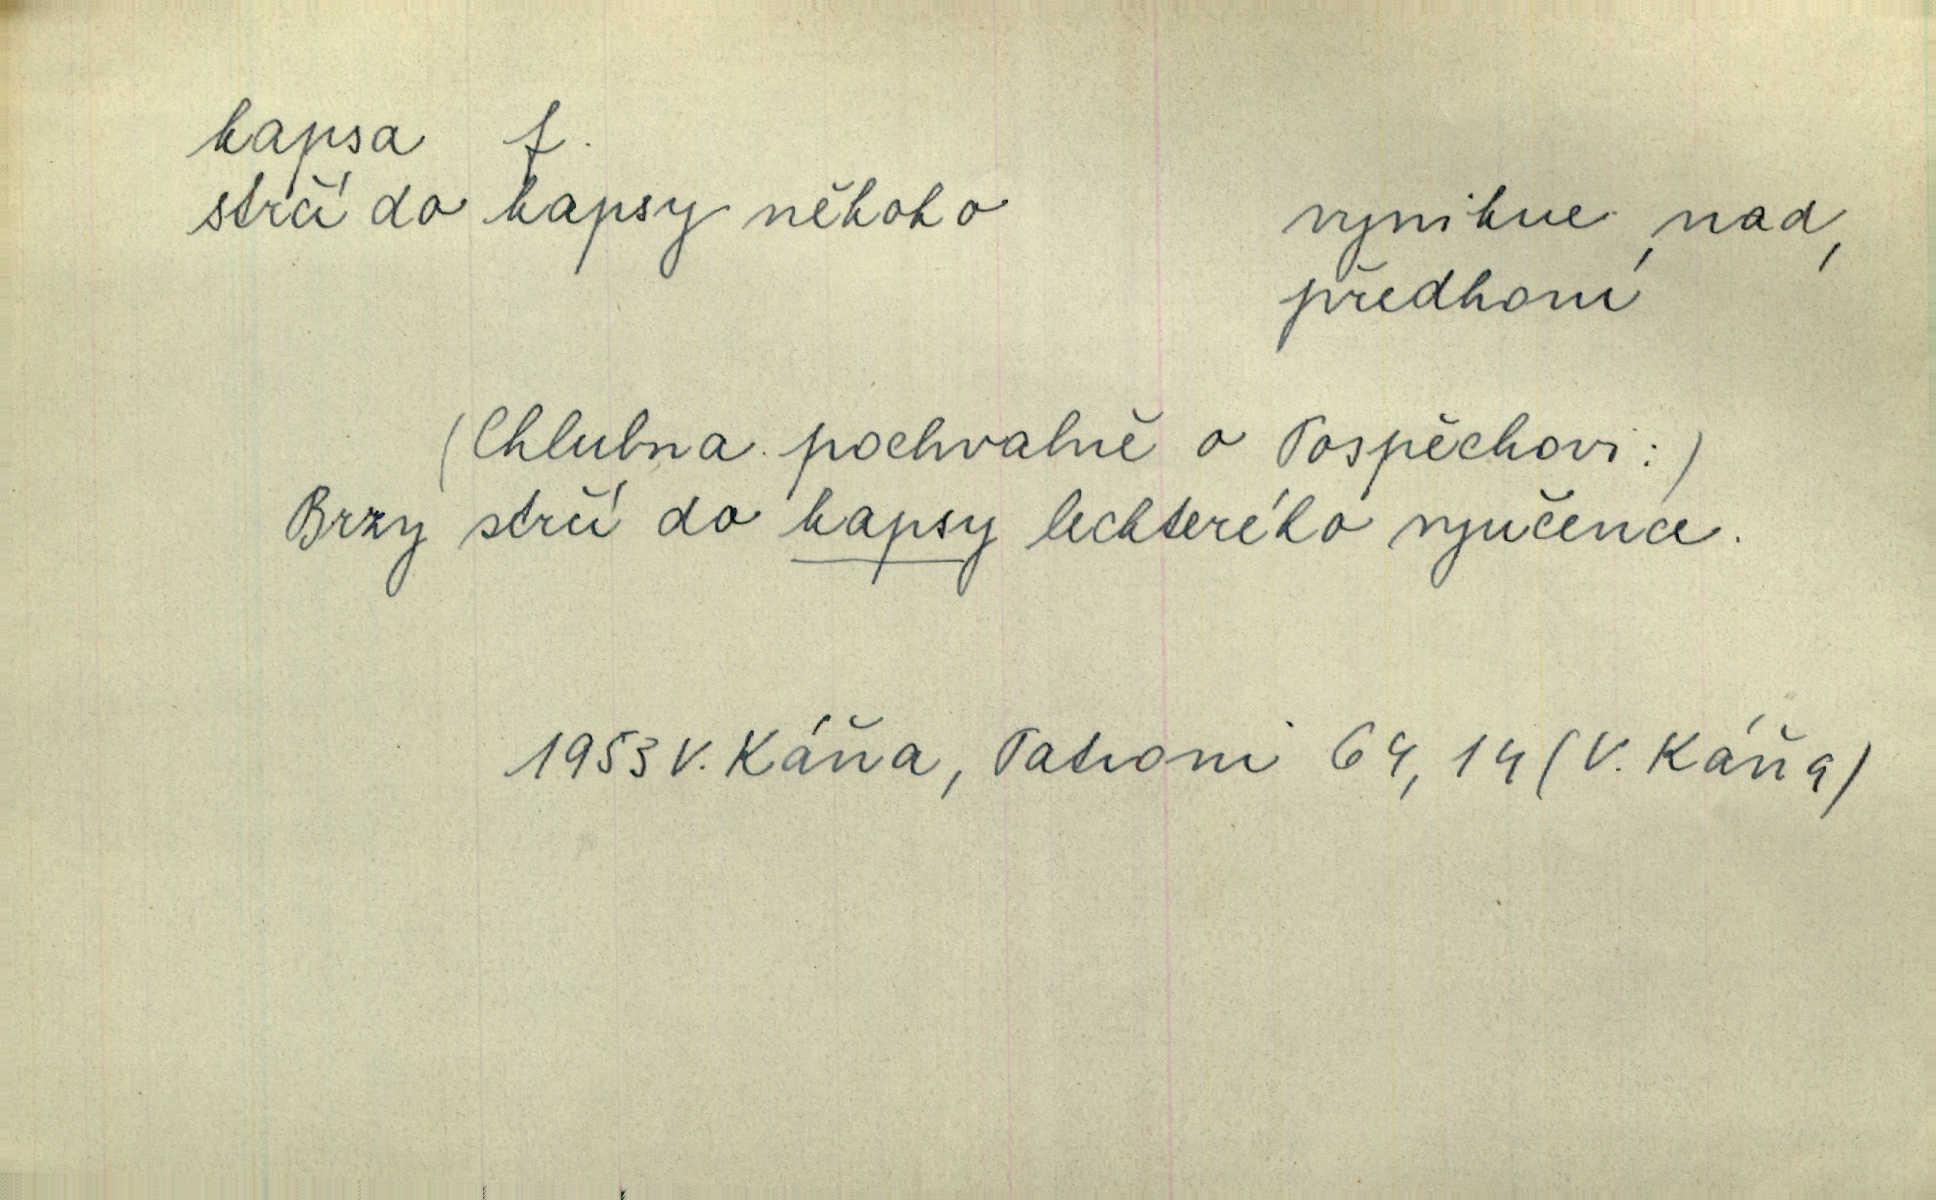 kapsa f.
strčí do kapsy někoho
vynikne nad,
předhoní
(Chlubna pochvalně o Pospěchovi:)
Brzy strčí do kapsy leckterého vyučence.
1953 V. Káňa, Patroni 64, 14 (V. Káňa)